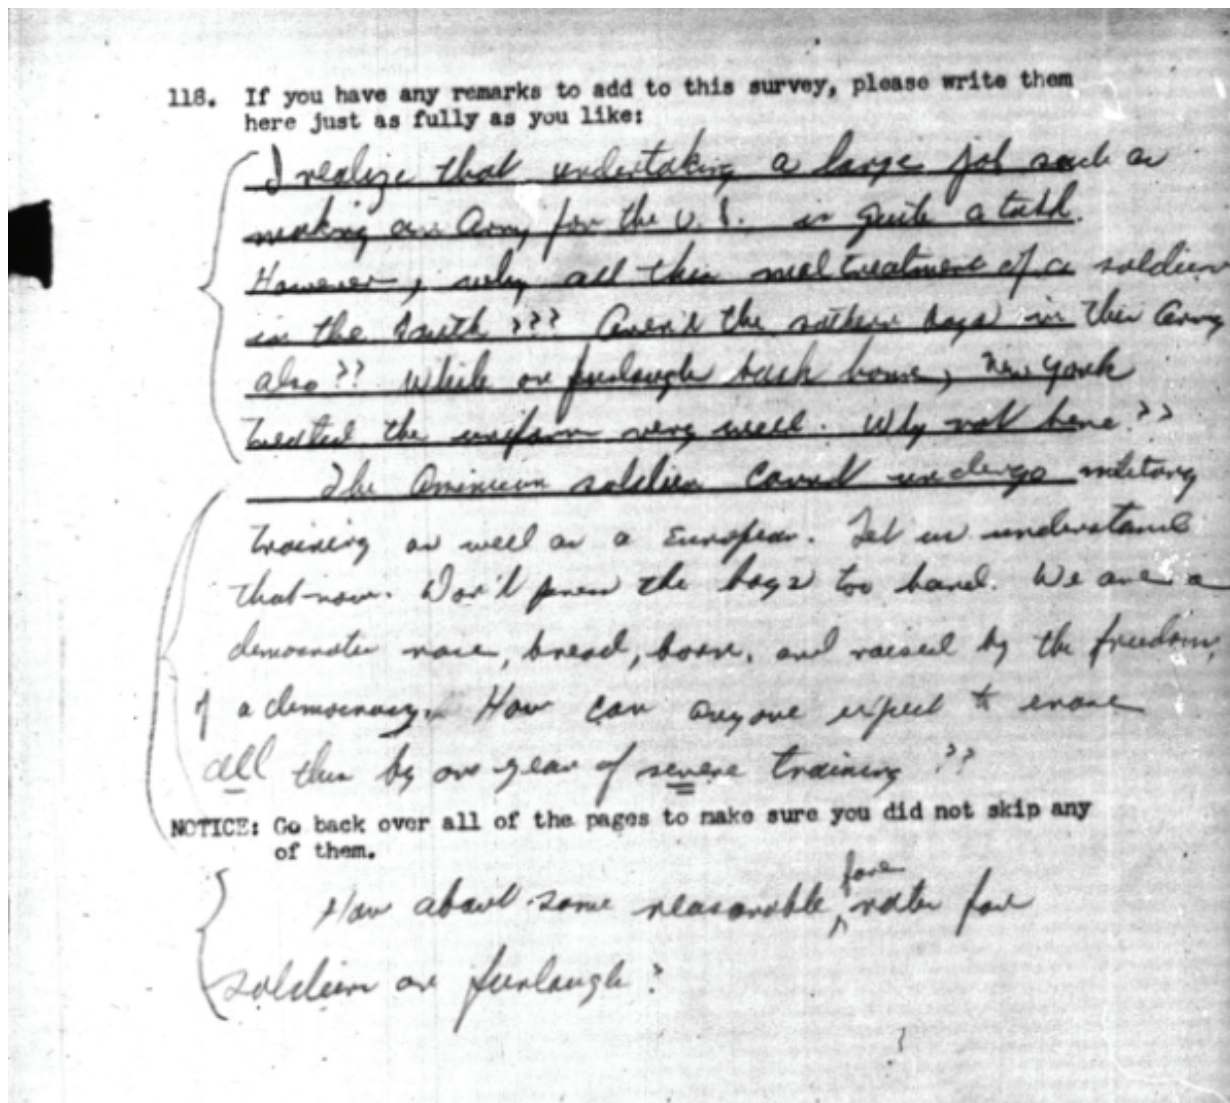 118. If you have any remarks to add to this survey, please write them
here just as fully as you like:
I realize that undertaking a large job such as
making an Army for the U.S. is quite a task.
However, why all this maltreatment of a soldier
in the South ??? Aren't the southern boys in this Army
also ?? While on furlough back home, New York
treated the uniform very well. Why not here ??
The American soldier cannot undergo military
training as well as a European. Let us understand
that now. Don't press the boys too hard. We are a
democratic race, bread, born, and raised by the freedom,
of a democracy. How can anyone expect to erase
all this by one year of severe training ??
NOTICE: Go back over all of the pages to make sure you did not skip any
of them.
How about some reasonable fare rates for
soldiers on furlough ?